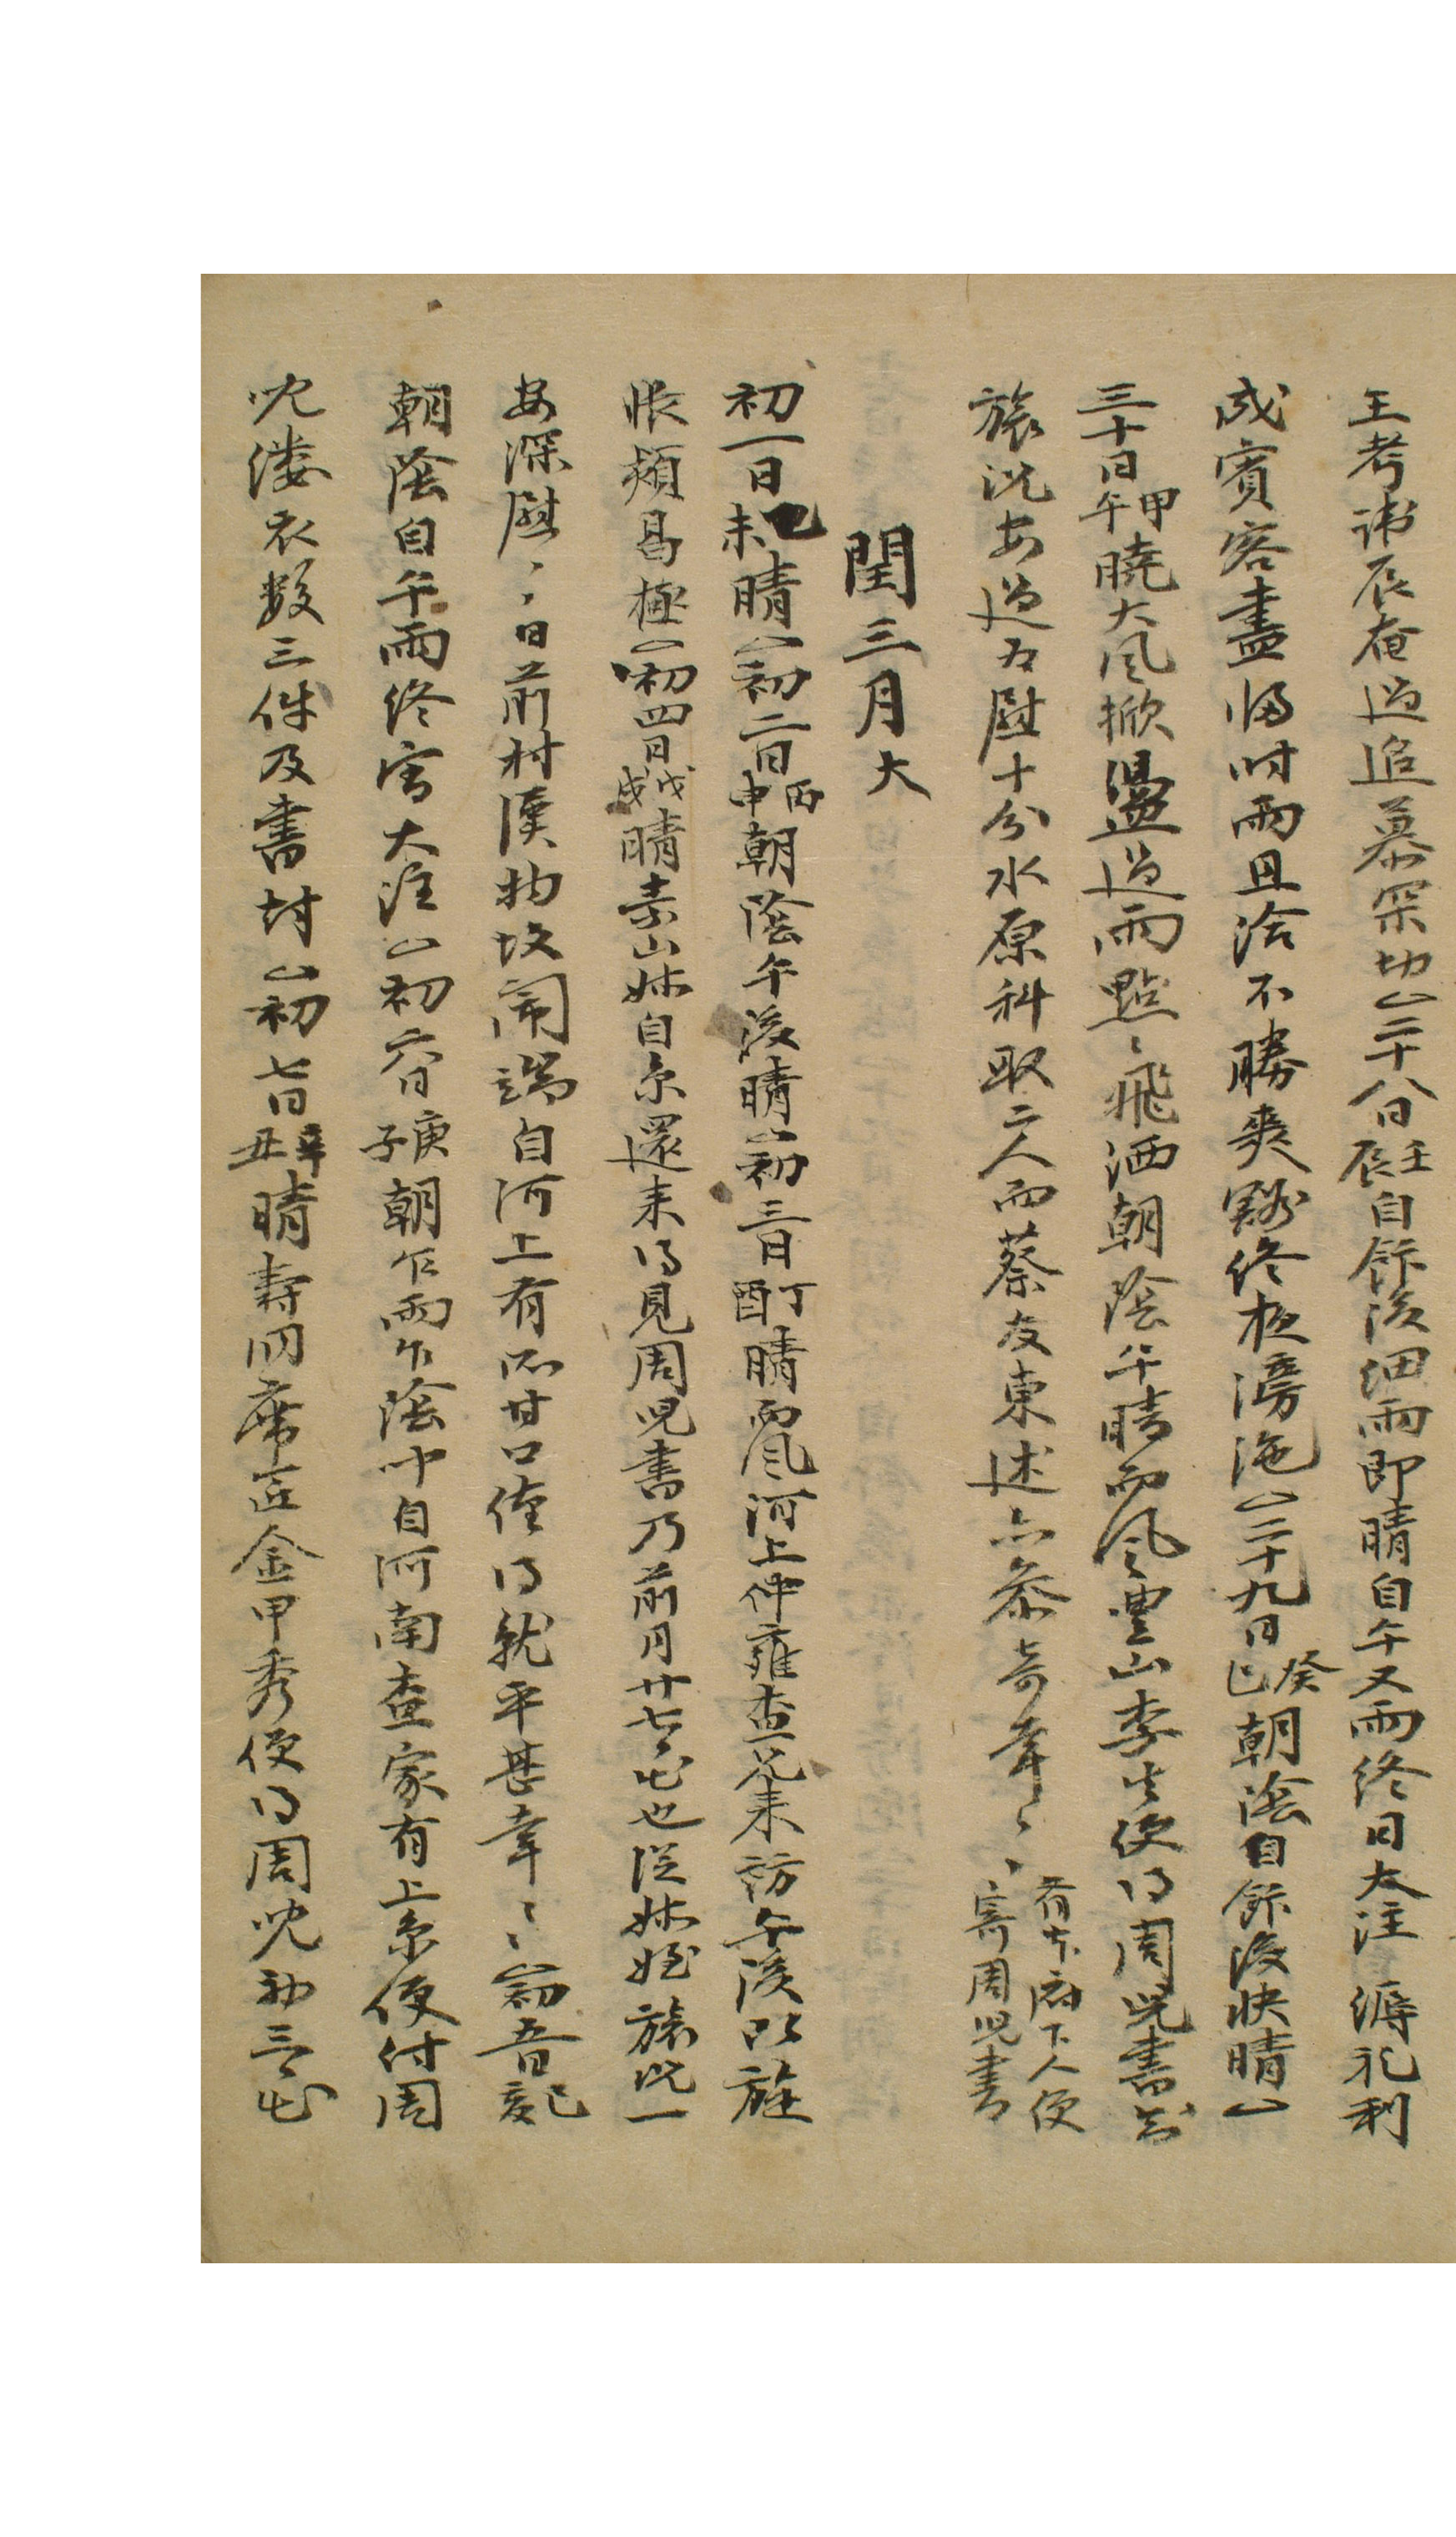 王考諱辰奄過追慕罙切△二十八日壬辰自飯後洒雨即晴自午又雨終日大注溽礼利
成賓客盡歸时雨且洽不勝爽豁終夜滂沲△二十九日癸巳朝陰自飯後快晴△
三十日甲午曉大風掀盪過雨點〻飛洒朝陰午晴而風豊山李生便得周児書知
旅况安過為慰十分水原科取二人而蔡友東述亦叅奇幸〻有本府下人便寄周児書
閏三月大
初一日乙未晴△初二日丙申朝陰午後晴△初三日丁酉晴而風河上仲雍查兄来訪午後旋
悵頰曷極△初四日戊戌晴素山妹自京還来得見周児書乃前月廿七出也從妹姪旅况一
安深慰〻日前村漢物故鬧端自河上有不甘口僅得就平甚幸〻△初五日己亥
朝陰自午雨終宵大注△初六日庚子朝乍雨乍陰中自河南查家有上京便付周
児漊衣数三件及書封△初七日辛丑晴壽洞席匠金甲秀便得周児初三出